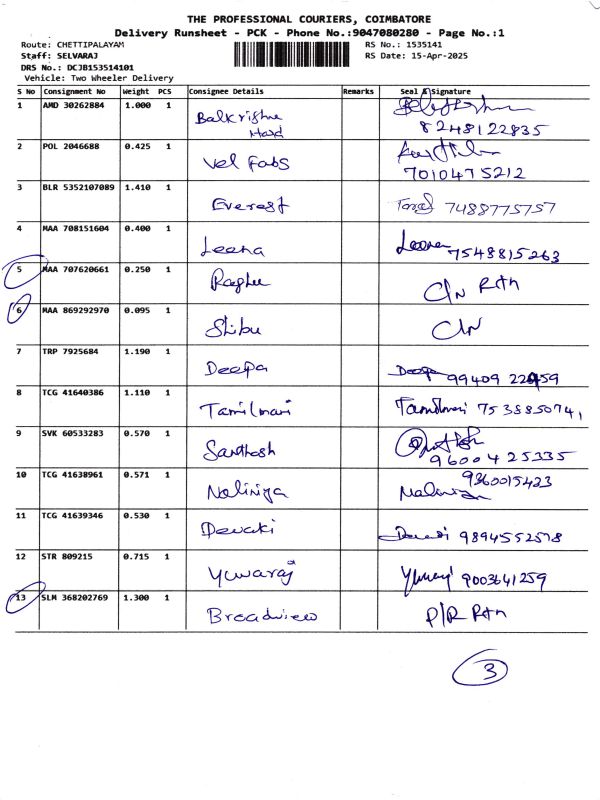 THE PROFESSIONAL COURIERS, COIMBATORE
Delivery Runsheet - PCK - Phone No.:9047080280 - Page No.:1
Route: CHETTIPALAYAM RS No.: 1535141
Staff: SELVARAJ RS Date: 15-Apr-2025
DRS No.: DCJB153514101
Vehicle: Two Wheeler Delivery
S No Consignment No Weight PCS Consignee Details Remarks Seal & Signature
1 AMD 30262884 1.000 1 Balkrishna
Hard
8248122835
2 POL 2046688 0.425 1 Vel Fabs
7010475212
3 BLR 5352107089 1.410 1 Everest 7488775757
4 MAA 708151604 0.400 1 Leena Leena 7548815263
5 MAA 707620661 0.250 1 Raghu C/N Rtn
6 MAA 869292970 0.095 1 Shibu C/N
7 TRP 7925684 1.190 1 Deepa Deepa 99409 22959
8 TCG 41640386 1.110 1 Tamilmani Tamilmani 7538850741
9 SVK 60533283 0.570 1 Santhosh
9600425335
10 TCG 41638961 0.571 1 Naliniya 9360015423
11 TCG 41639346 0.530 1 Devaki Devaki 9894552578
12 STR 809215 0.715 1 Yuvaraj Yuvaraj 9003641259
13 SLM 368202769 1.300 1 Broadview P/R Rtn
3